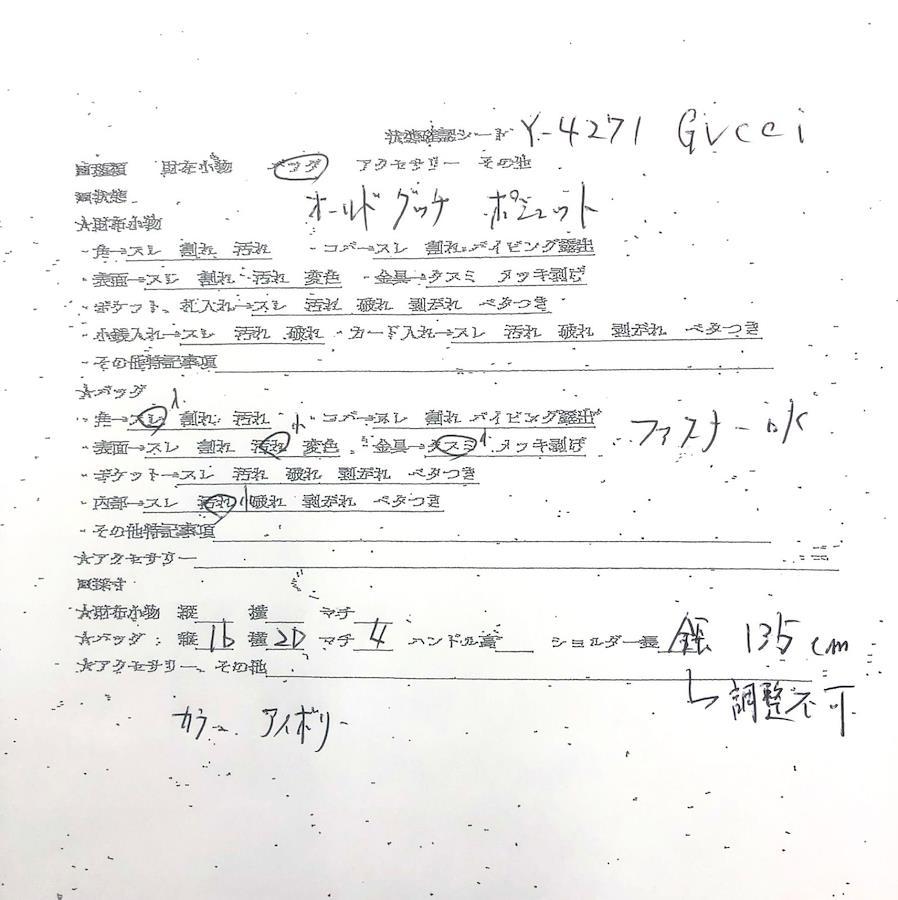 状態確認シート Y-4271 Gucci
■種類 財布小物 バッグ アクセサリー その他
■状態 オールドグッチ ポシェット
★財布小物
・角→スレ 割れ 汚れ ・コバ→スレ 割れ パイピング露出
・表面→スレ 割れ 汚れ 変色 ・金具→クスミ メッキ剥げ
・ポケット、札入れ→スレ 汚れ 破れ 剥がれ ベタつき
・小銭入れ→スレ 汚れ 破れ ・カード入れ→スレ 汚れ 破れ 剥がれ ベタつき
・その他特記事項
★バッグ
・角→スレ小 割れ 汚れ ・コバ→スレ 割れ パイピング露出
・表面→スレ 割れ 汚れ小 変色 ・金具→クスミ小 メッキ剥げ ファスナーOK
・ポケット→スレ 汚れ 破れ 剥がれ ベタつき
・内部→スレ 汚れ小 破れ 剥がれ ベタつき
・その他特記事項
★アクセサリー
■採寸
★財布小物 縦 横 マチ
★バッグ:縦16 横20 マチ4 ハンドル高 ショルダー長 全長 135cm
★アクセサリー、その他
調整不可
カラー アイボリー